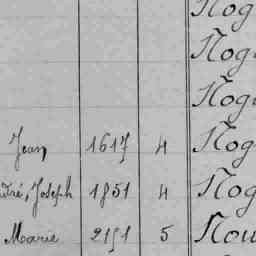 Nog
Nog
Nog
Jean 1617 4 Nog
André, Joseph 1851 4 Nog
Marie 2151 5 Nou